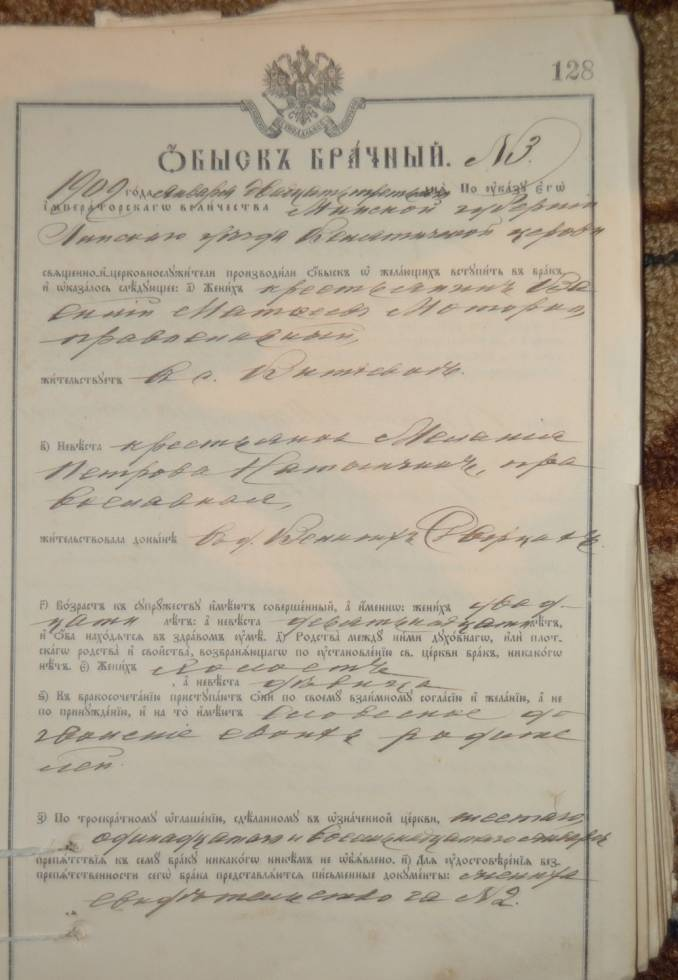 128
Ѻбыскъ брачный. №3.
1909 года января двадцать третьяго дня. По указу Єгѡ
Императорскагѡ величества Минской губерніи
Пинскаго уѣзда церкви
священно- и церковнослужители производили Ѻбыскъ ѡ желающихъ вступить въ бракъ,
и ѡказалось слѣдующее: а) Женихъ крестьянинъ Ва
силій Матѳеевъ Моторко,
православный,
жительствуетъ в с.
в) Невѣста крестьянка Меланія
Петрова пра
вославная,
жительствовала донынѣ в д.
г) Возрастъ къ супружеству имѣютъ совершенный, а именнѡ: женихъ двад-
цати лѣтъ: а невѣста девятьнадцати лѣтъ,
и Ѻба находятся въ здравомъ умѣ. д) Родства между ними духовнагѡ, или плот-
скагѡ родства и свойства, возбраняющагѡ по установленію св. церкви бракъ, никакогѡ
нѣтъ. є) Женихъ холостъ
, а невѣста дѣвица
ѕ) Въ бракосочетанію приступаютъ Ѻни по своему взаимному согласію и желанію, а не
по принужденію, и на то имѣютъ словесное до
зволеніе своихъ родите
лей.
з) По троекратному ѡглашенію, сдѣланному въ ѡзначенной церкви, шестаго,
одинадцатаго и восемьнадцатаго января
препятствія къ сему браку никакогѡ никѣмъ не ѡбъявлено. и) Для удостовѣренія без-
препятственности сегѡ брака представляются письменные документы: жениха
свидѣтельство за №2.